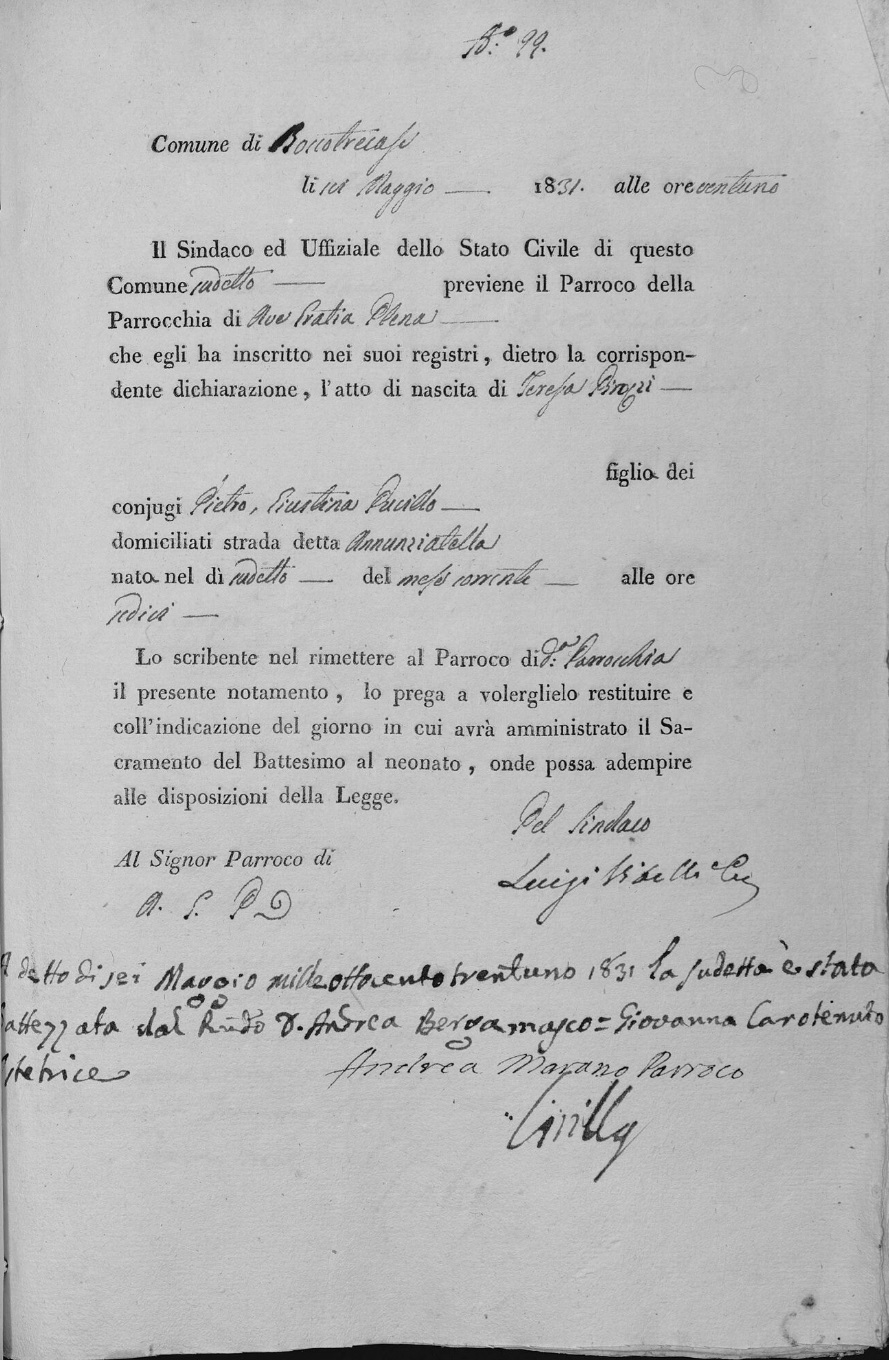 N.º 99.
Comune di Boscotrecase
li sei Maggio — 1831. alle ore ventuno
Il Sindaco ed Uffiziale dello Stato Civile di questo
Comune sudetto — previene il Parroco della
Parrocchia di Ave Gratia Plena —
che egli ha inscritto nei suoi registri, dietro la corrispon-
dente dichiarazione, l'atto di nascita di Teresa Pinzi —
figlia dei
conjugi Pietro, Giustina Pucillo —
domiciliati strada detta Annunziatella
nata nel dì sudetto — del mese corrente — alle ore
sedici —
Lo scribente nel rimettere al Parroco di d.ª Parrocchia
il presente notamento, lo prega a volerglielo restituire e
coll'indicazione del giorno in cui avrà amministrato il Sa-
cramento del Battesimo al neonato, onde possa adempire
alle disposizioni della Legge.
Pel Sindaco
Al Signor Parroco di
Luigi Vitelli
A. G. P.
detto di sei Maggio mille ottocento trentuno 1831 la sudetta è stata
battezzata dal Rndo D. Andrea Bergamasco = Giovanna Carotenuto
Ostetrice
Andrea Marano Parroco
Cirillo